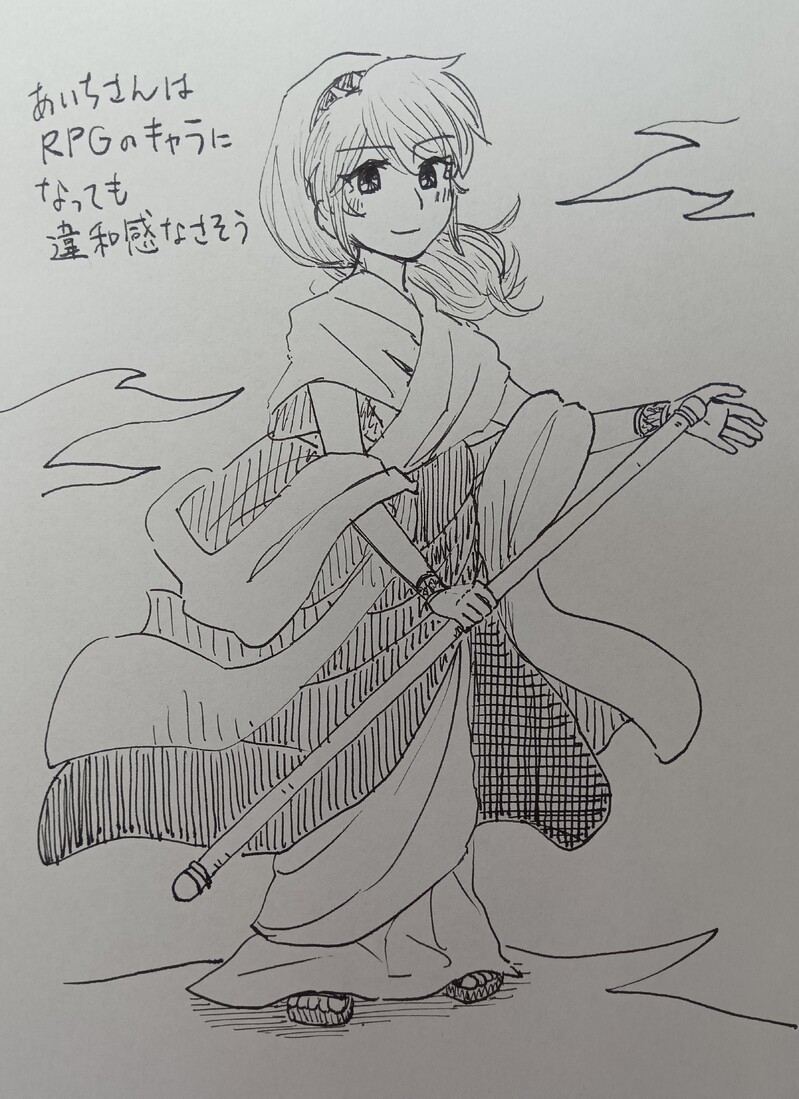 あいちさんは
RPGのキャラに
なっても
違和感なさそう